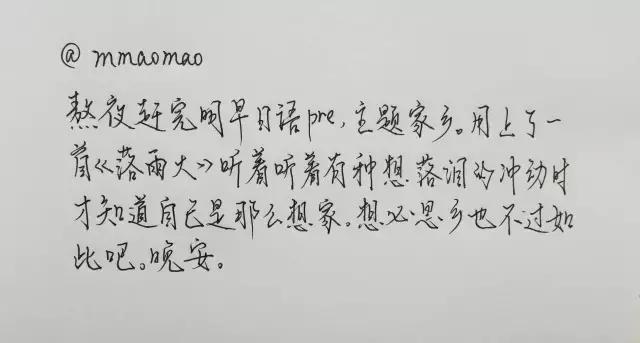 @ mmaomao
熬夜赶完明早日语pre,主题家乡。用上了一
首《落雨大》听着听着有种想落泪的冲动时
才知道自己是那么想家。想必思乡也不过如
此吧。晚安。